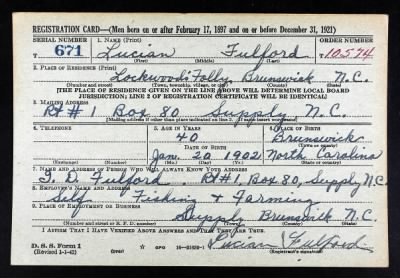 REGISTRATION CARD—(Men born on or after February 17, 1897 and on or before December 31, 1921)
SERIAL NUMBER 1. NAME (Print) ORDER NUMBER
671 Lucian Fulford 10574
(First) (Middle) (Last)
2. PLACE OF RESIDENCE (Print)
Lockwood's Folly, Brunswick N.C.
(Number and street) (Town, township, village, or city) (County) (State)
[THE PLACE OF RESIDENCE GIVEN ON THE LINE ABOVE WILL DETERMINE LOCAL BOARD
JURISDICTION; LINE 2 OF REGISTRATION CERTIFICATE WILL BE IDENTICAL]
3. MAILING ADDRESS
Rt #1 Box 80 Supply N.C.
[Mailing address if other than place indicated on line 2. If same insert word same]
4. TELEPHONE 5. AGE IN YEARS 6. PLACE OF BIRTH
40 Brunswick
DATE OF BIRTH (Town or county)
Jan. 20 1902 North Carolina
(Exchange) (Number) (Mo.) (Day) (Yr.) (State or country)
7. NAME AND ADDRESS OF PERSON WHO WILL ALWAYS KNOW YOUR ADDRESS
Fulford. Rt #1, Box 80, Supply N.C.
8. EMPLOYER'S NAME AND ADDRESS
Self Fishing + Farming
9. PLACE OF EMPLOYMENT OR BUSINESS
Supply Brunswick N.C.
(Number and street or R. F. D. number) (Town) (County) (State)
I AFFIRM THAT I HAVE VERIFIED ABOVE ANSWERS AND THAT THEY ARE TRUE.
D. S. S. Form 1
(Revised 1-1-42) GPO Lucian Fulford
(Registrant's signature)